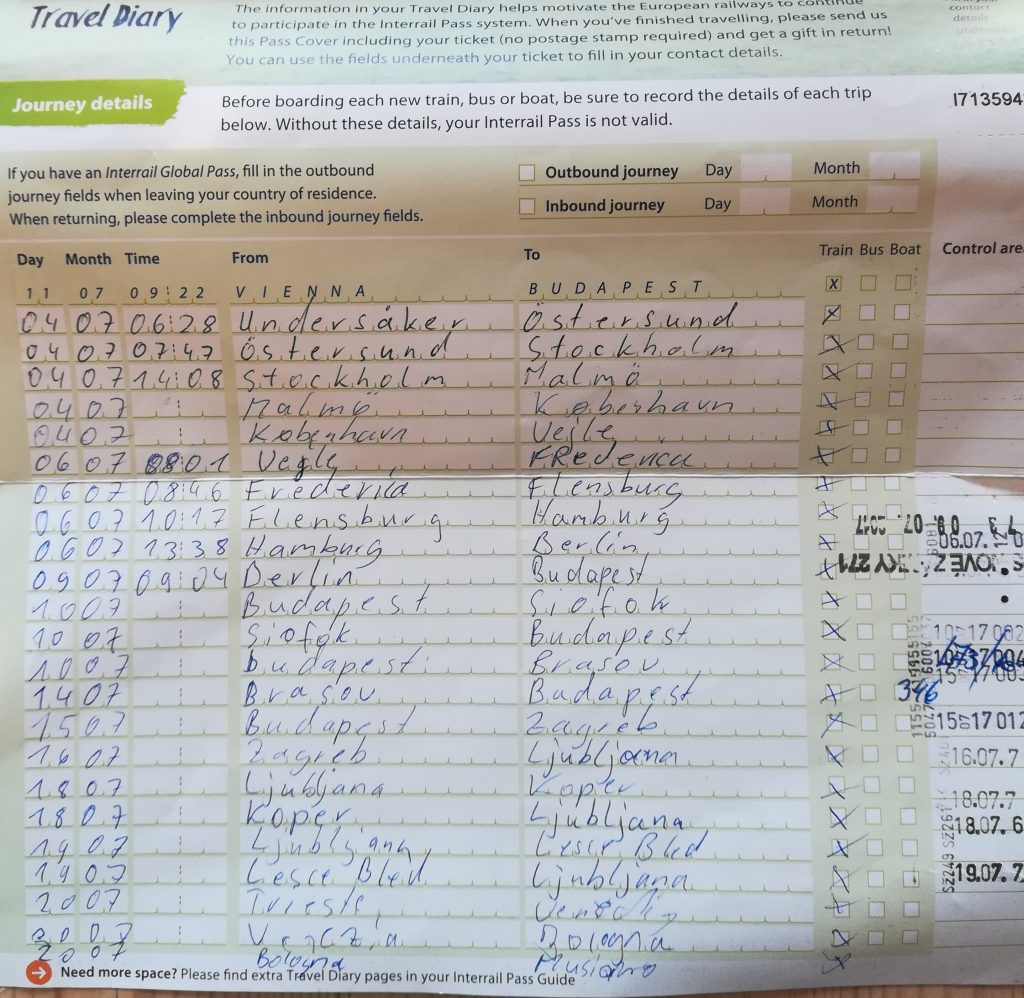 Travel Diary
The information in your Travel Diary helps motivate the European railways to continue
to participate in the Interrail Pass system. When you've finished travelling, please send us
this Pass Cover including your ticket (no postage stamp required) and get a gift in return!
You can use the fields underneath your ticket to fill in your contact details.
contact
details
Journey details
Before boarding each new train, bus or boat, be sure to record the details of each trip
below. Without these details, your Interrail Pass is not valid.
I713594
If you have an Interrail Global Pass, fill in the outbound
journey fields when leaving your country of residence.
When returning, please complete the inbound journey fields.
Outbound journey Day Month
Inbound journey Day Month
Day Month Time From To Train Bus Boat Control are
11 07 09:22 VIENNA BUDAPEST X
04 07 06:28 Undersåker Östersund X
04 07 07:47 Östersund Stockholm X
04 07 14:08 Stockholm Malmö X
04 07 Malmö København X
04 07 København Vejle X
06 07 08:01 Vejle FRedericia X
06 07 08:46 Fredericia Flensburg X
06 07 10:17 Flensburg Hamburg X
06 07 13:38 Hamburg Berlin X 06.07.
09 07 09:04 Berlin Budapest X
10 07 Budapest Siofok X
10 07 Siofok Budapest X
10 07 budapest Brasov X
14 07 Brasov Budapest X 346
15 07 Budapest Zagreb X
16 07 Zagreb Ljubljana X 16.07.7
18 07 Ljubljana Koper X 18.07.7
18 07 Koper Ljubljana X 18.07.6
19 07 Ljubljana Lesce Bled X
19 07 Lesce Bled Ljubljana X 19.07.7
20 07 Trieste X
20 07 Venezia Bologna X
20 07 Bologna X
Need more space? Please find extra Travel Diary pages in your Interrail Pass Guide